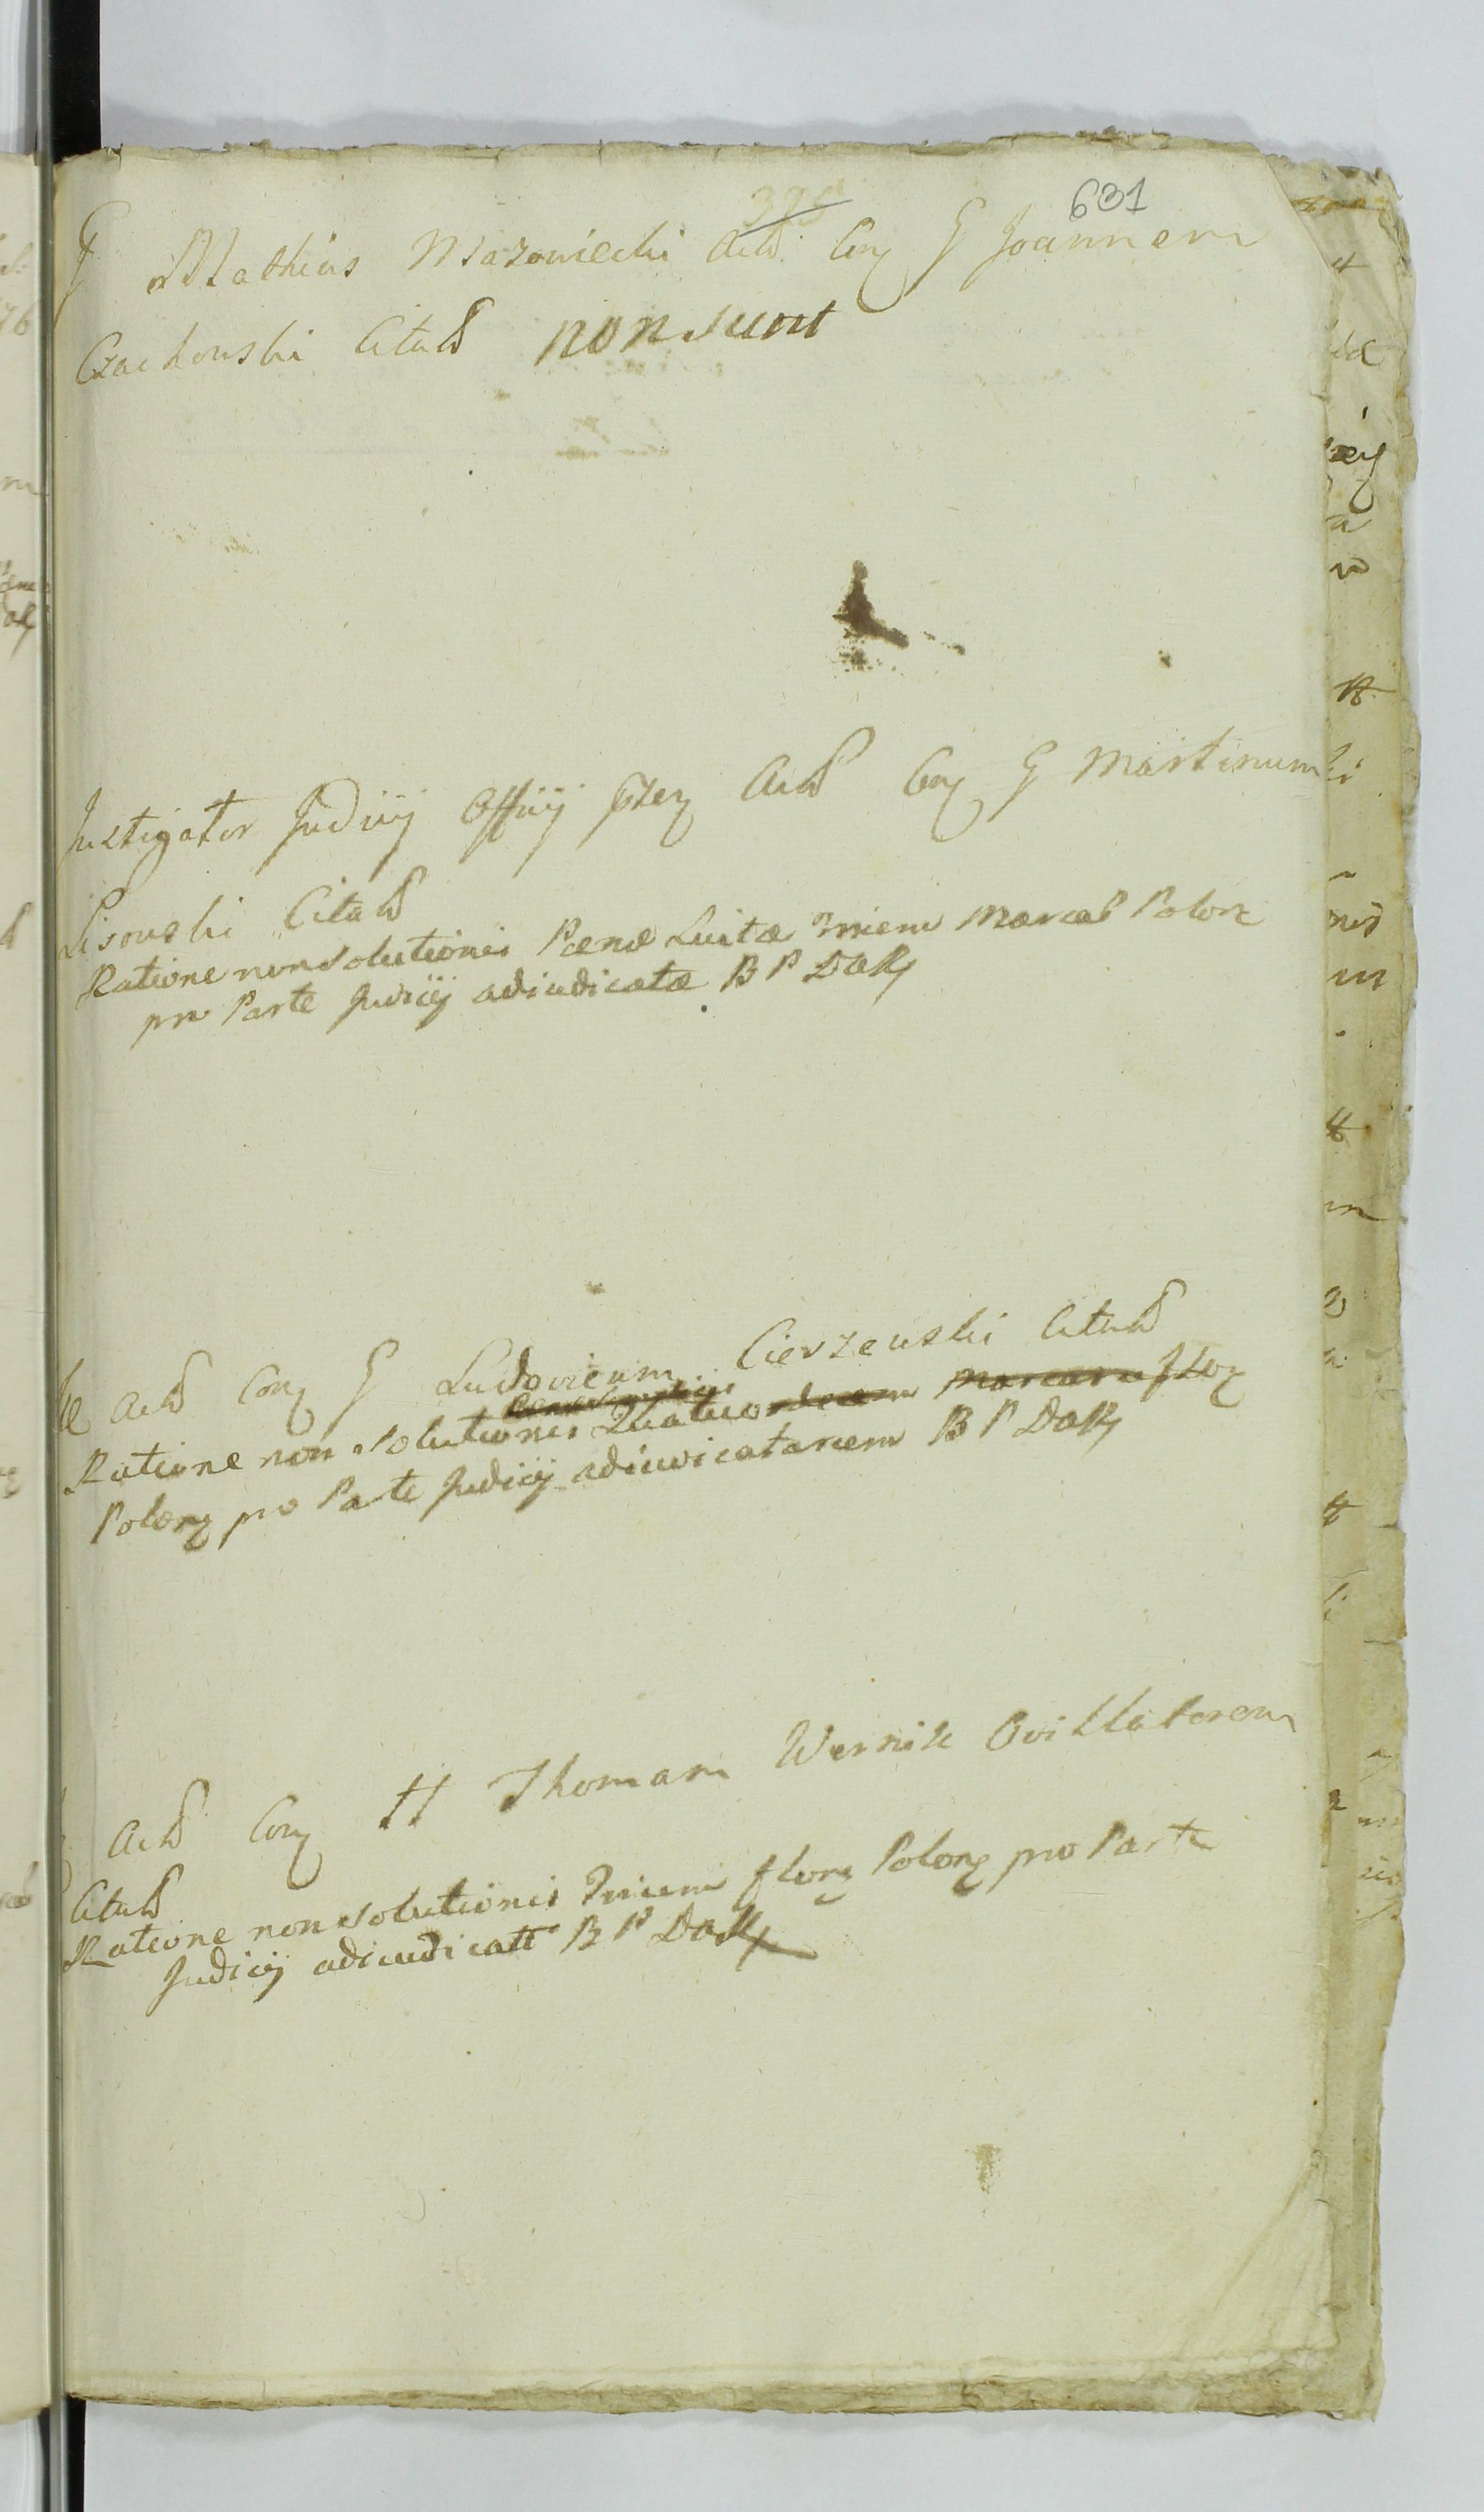 631
G Mathias Mazowiecki Actt Con G Joannem
Czachouski Citatt non sunt
Instigator Judiij Offiij Actt Con G Martinum
Lisouski Citatt
Ratione non solutionis Pænæ Luitæ Trium Marcar Polon
pro Parte Judicij adiudicatæ B P Dak
Actt Con G Ludovicum Cierzeuski Citatt
Ratione non solutionis Quatuordecem Marcarum flor
Polon pro Parte Judicij B P Dak
Actt Con H Thomam Wernik Ovillatorem
Citatt
Ratione non solutionis Trium flor Polon pro Parte
Judicij adiudicatt B P Dak